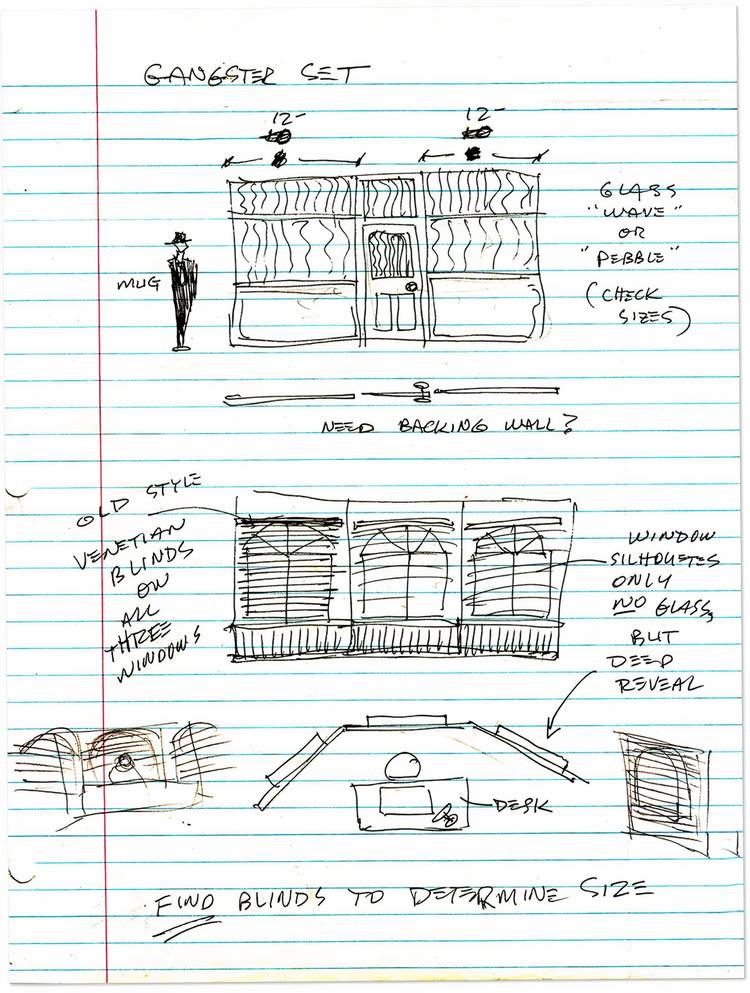 GANGSTER SET
12-
12-
GLASS
"WAVE"
OR
"PEBBLE"
(CHECK
SIZES)
MUG
NEED BACKING WALL?
OLD STYLE
VENETIAN
BLINDS
ON
ALL
THREE
WINDOWS
WINDOW
SILHOUETES
ONLY
NO GLASS,
BUT
DEEP
REVEAL
DESK
FIND BLINDS TO DETERMINE SIZE